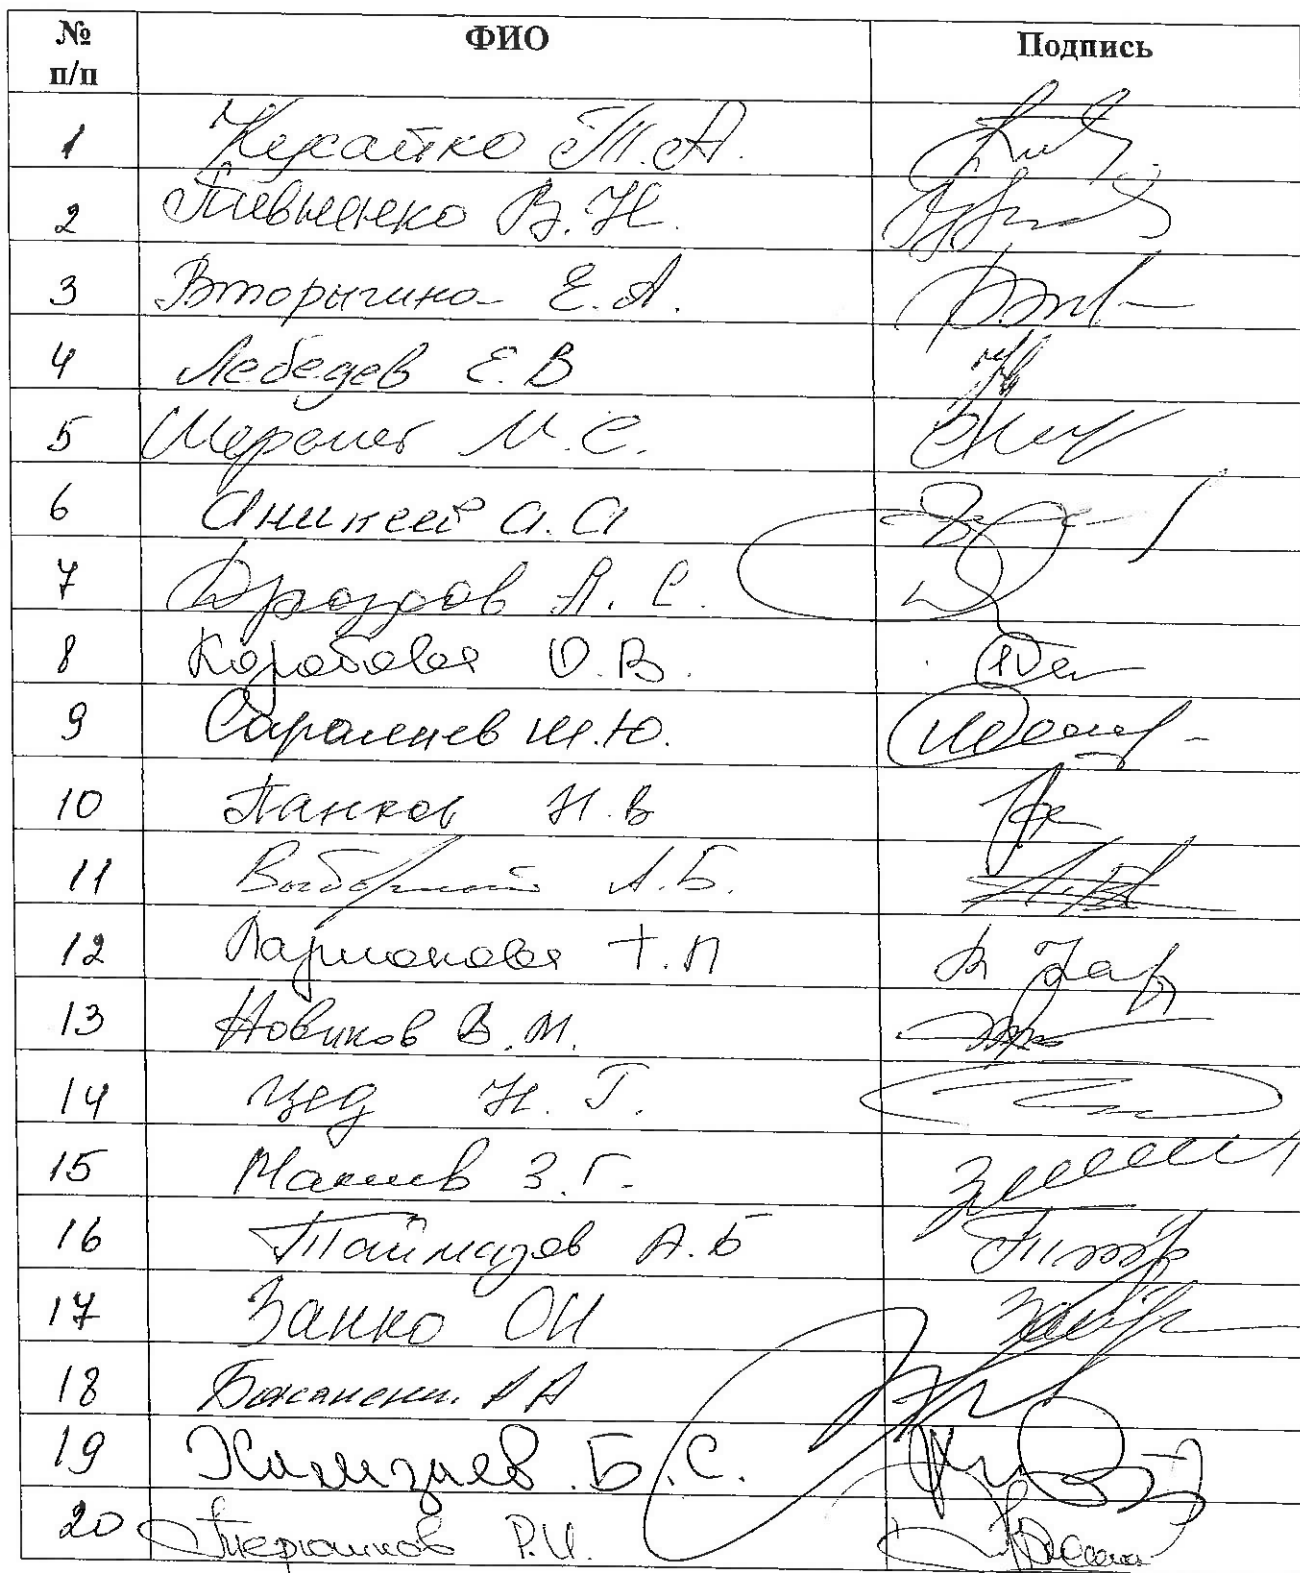 № п/п ФИО Подпись
1 Кусайко Т.А.
2 Пивненко В.Н.
3 Вторыгина Е.А.
4 Лебедев Е.В
5 Шеремет М.С.
6 Аникеев А.А
7 Дроздов А.С.
8 Коробова О.В.
9 Саралиев Ш.Ю.
10 Панков Н.В
11 Выборный А.Б.
12 Ларионова Т.П
13 Новиков В.М.
14 Цед Н.Г.
15 Макиев З.Г.
16 Таймазов А.Б
17 Занко ОН
18 А А
19 Хамзаев Б.С.
20 Терюшков Р.И.